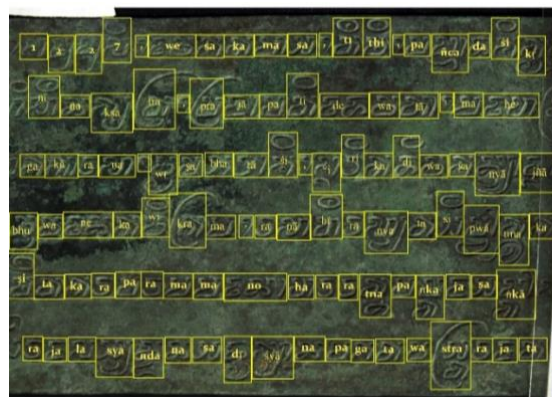 1 2 2 7 . we sa ka ma sa . ti thi . pa nca da si kr
ni na ksa tra . pra ja pa ti de wa ta . ma he
pa ka ra na . wr sa bha ra si . i ri ka di wa ka nya jna
bhu wa ne ka wi kra ma . ra na bi ra nya ta si pwa nna ka
ji ta ka ra pa ra ma ma no ha ra ra tna pa nka ja sa nka
ra ja la sya nda na sa di na pa ga ta wa stra ra ja ta